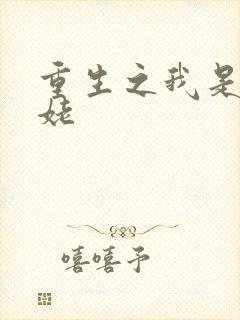 重生之我是
姥
嘻嘻予